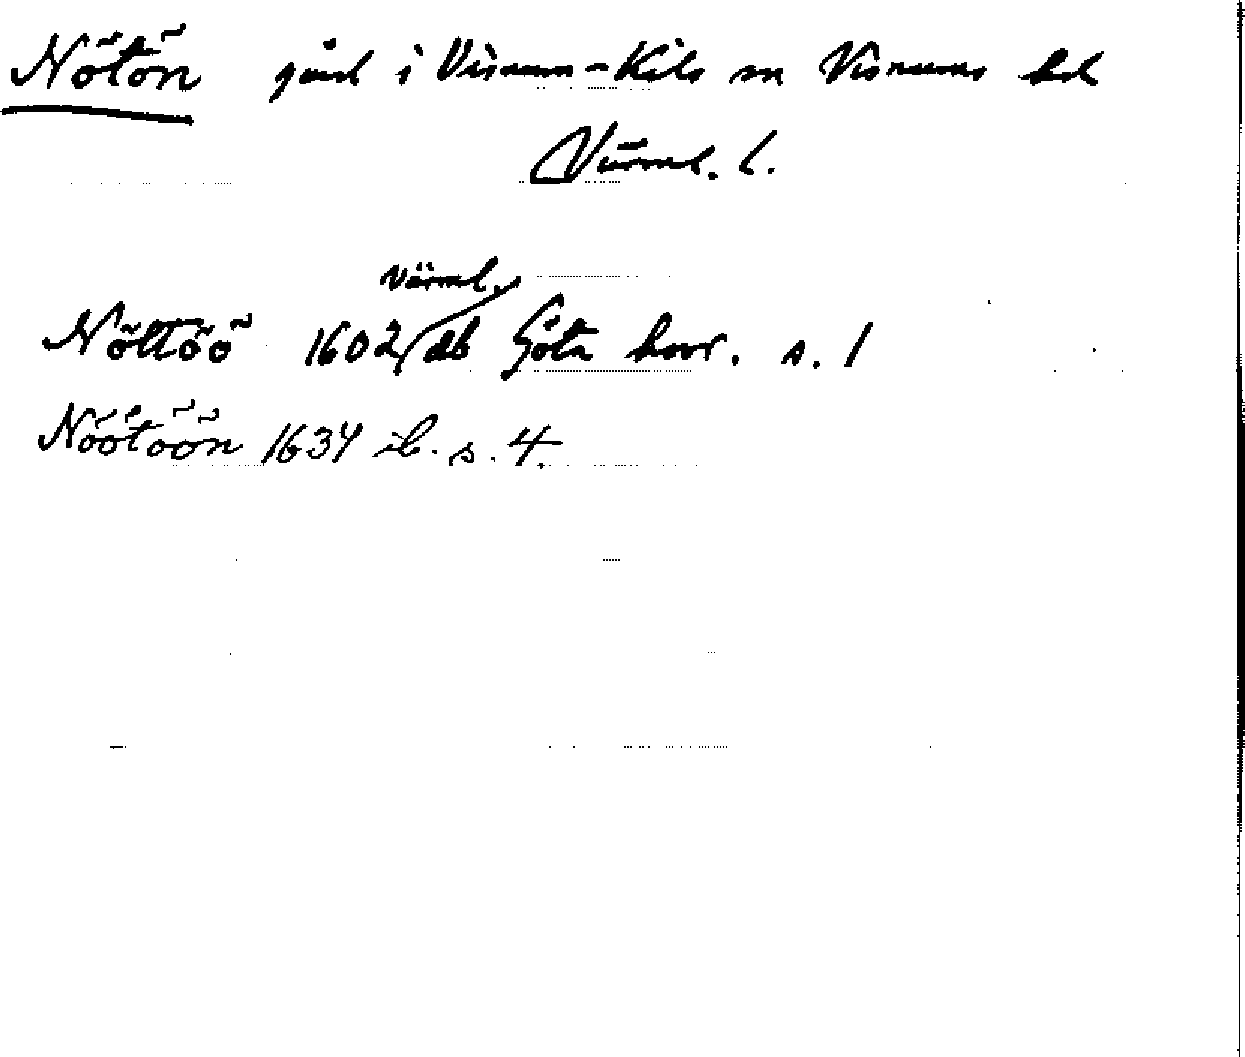 Nötön gård i Visnum-Kils sn Visnums hd
Värml. l.
Värml.
Nöttöö 1602 db Göta hovr. s. 1
Nöötöön 1634 ib. s. 4.